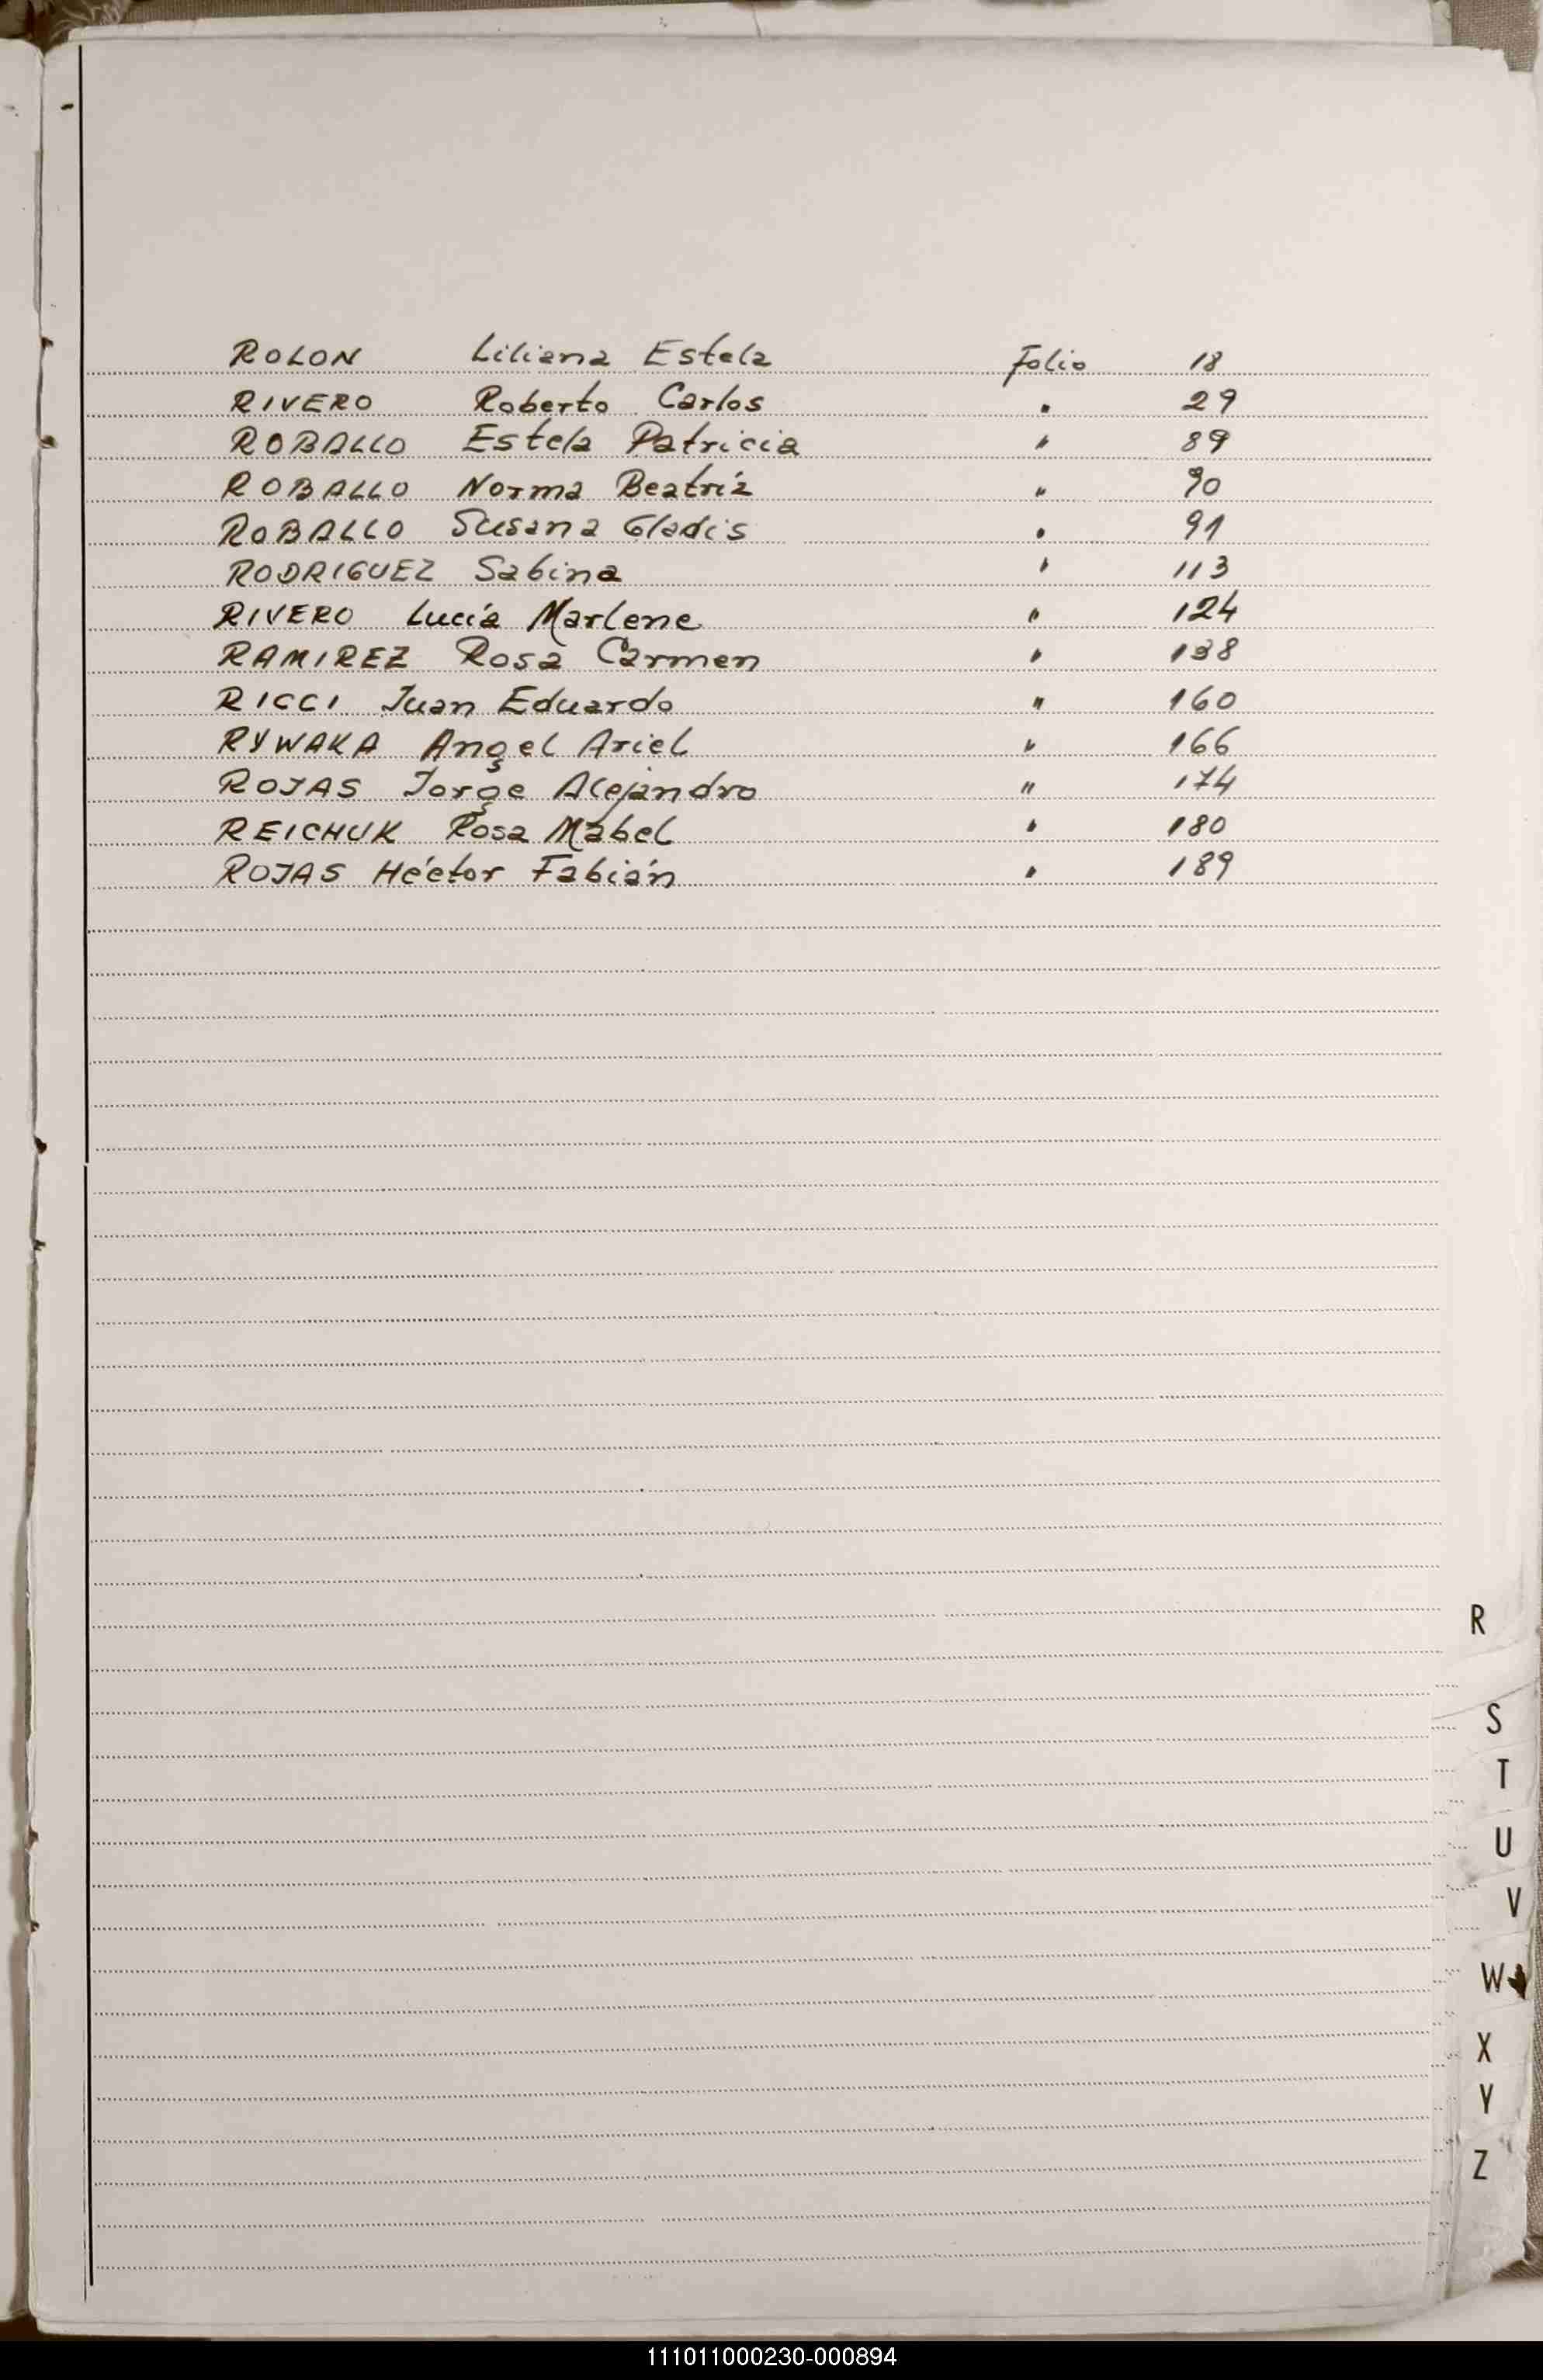 ROLON Liliana Estela Folio 18
RIVERO Roberto Carlos " 29
ROBALLO Estela Patricia " 89
ROBALLO Norma Beatríz " 90
ROBALLO Susana Gladis " 91
RODRIGUEZ Sabina " 113
RIVERO Lucía Marlene " 124
RAMIREZ Rosa Carmen " 138
RICCI Juan Eduardo " 160
RYWAKA Angel Ariel " 166
ROJAS Jorge Alejandro " 174
REICHUK Rosa Mabel " 180
ROJAS Héctor Fabián " 189
R
S
T
U
V
W
X
Y
Z
111011000230-000894